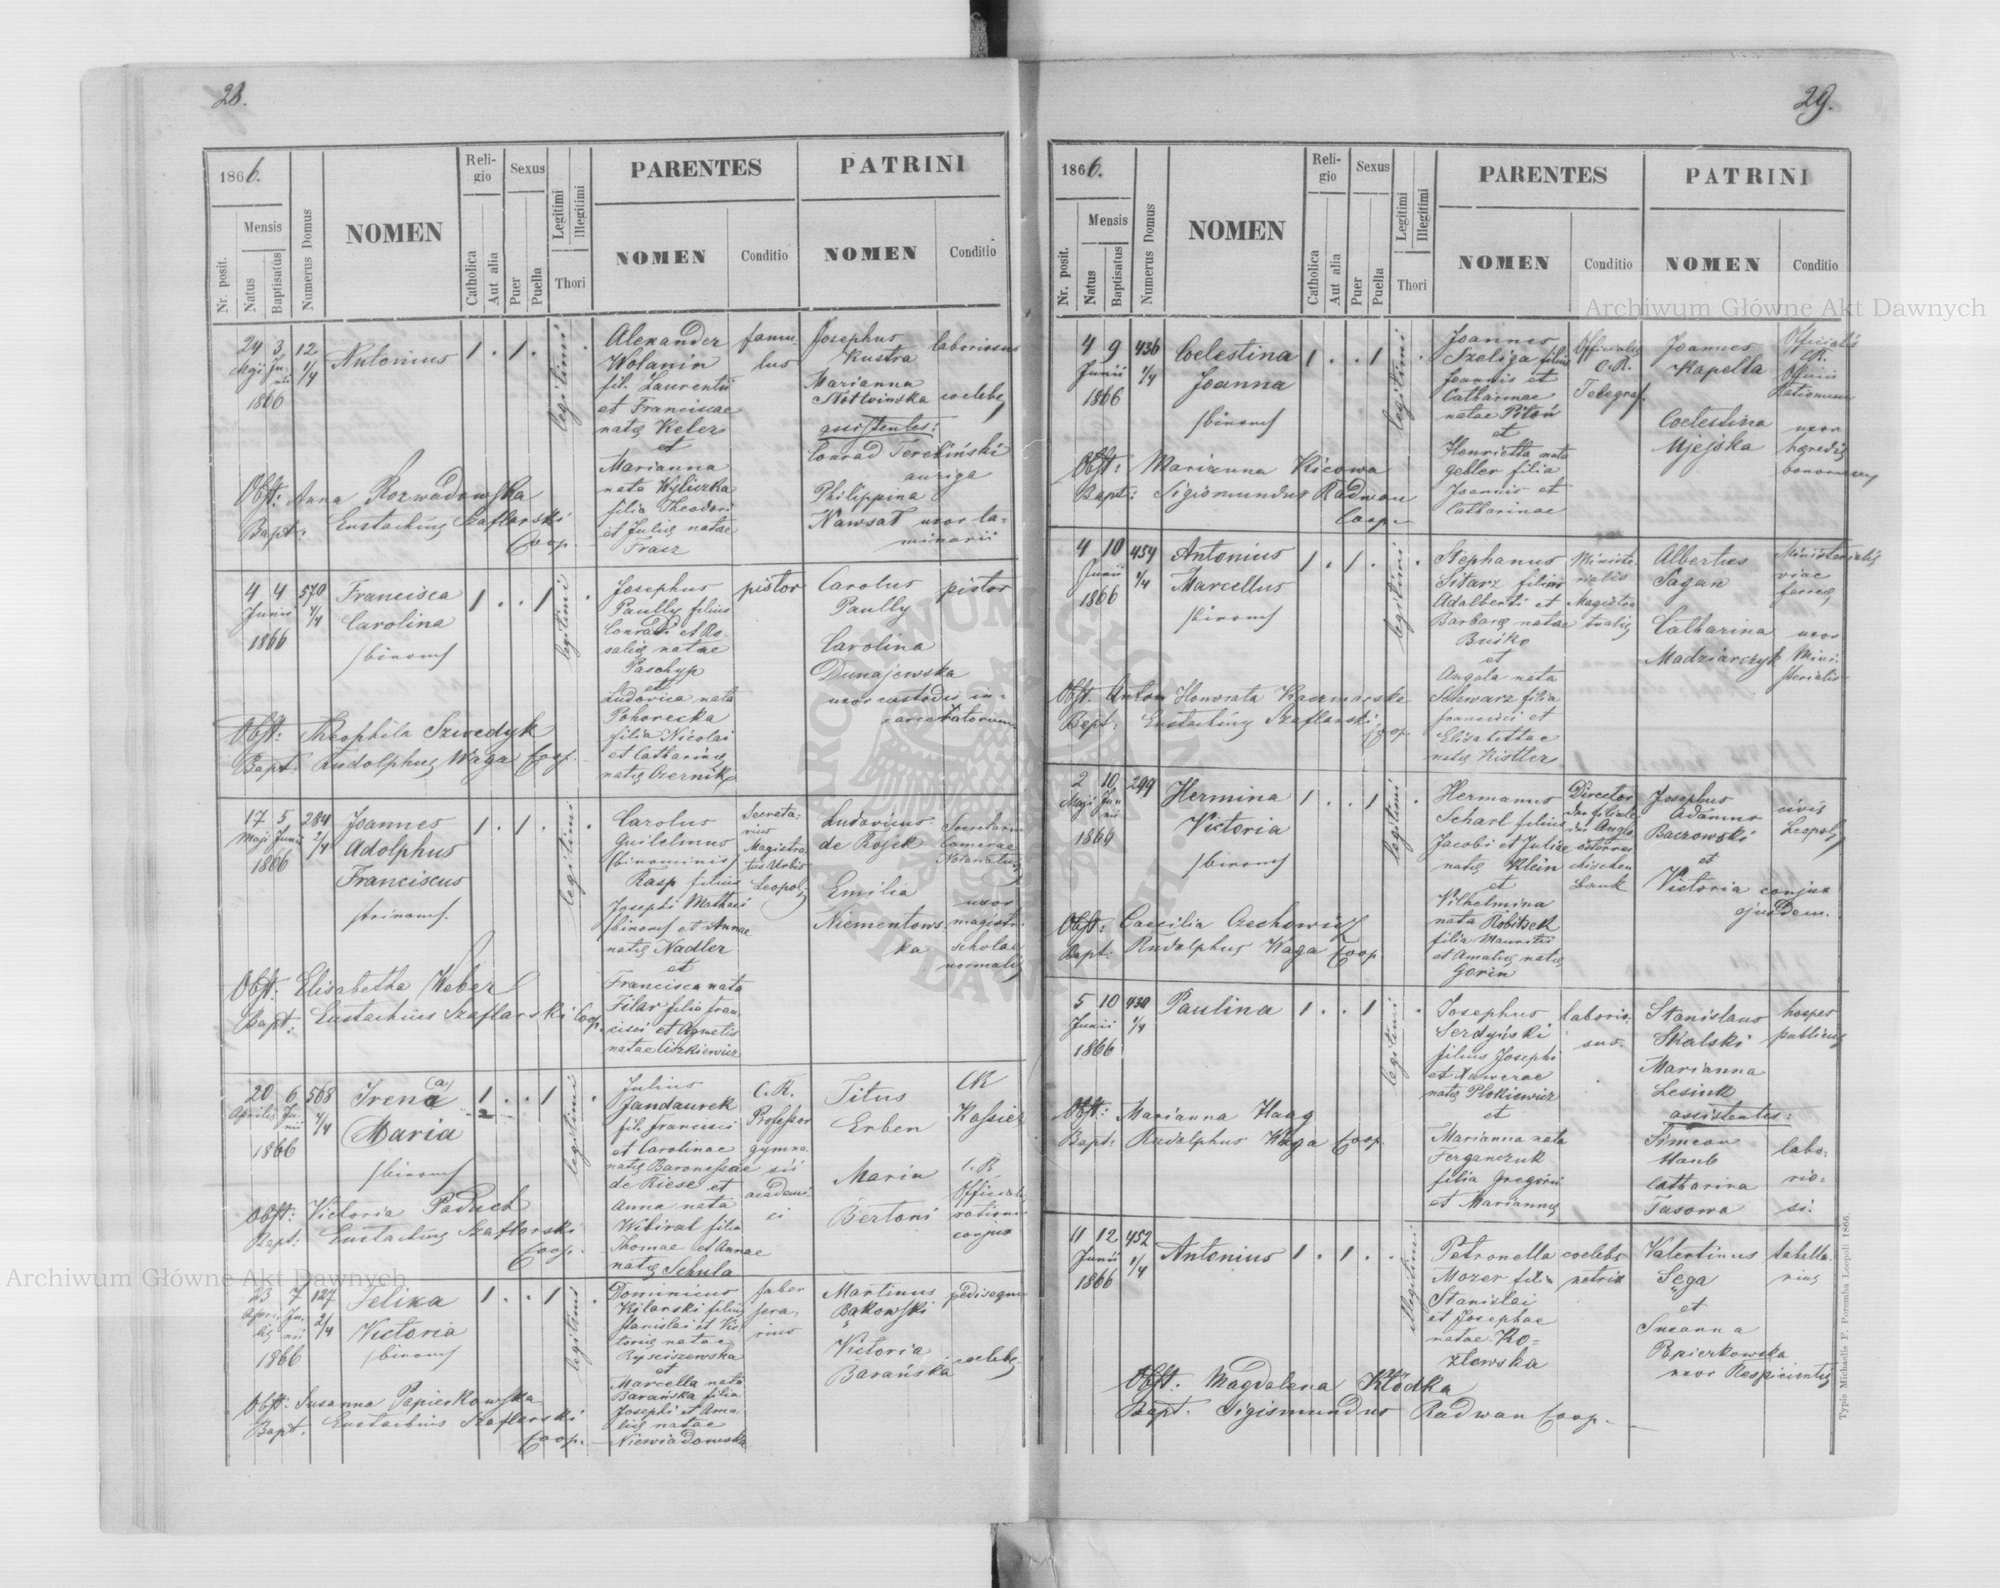 28.
1866.
Nr. posit.
Mensis
Natus
Baptisatus
Numerus Domus
NOMEN
Reli-
gio
Catholica
Aut alia
Sexus
Puer
Puella
Legitimi
Illegitimi
Thori
PARENTES
NOMEN
Conditio
PATRINI
NOMEN
Conditio
24 3 12
Maji Ju-
nii 1/4
1866
Antonius
1 . 1 .
legitimi
Alexander
Wolanin
fil. Laurentii
et Franciscae
natę Keler
et
Marianna
nata Wyliczka
filia Theodori
et Julię natae
Tracz
famu-
lus
Josephus
Kustra
laboriosus
Marianna
Słotwinska coelebs
assistentes:
Conrad Tereliński
auriga
Philippina
Nawsat uxor la-
minarii
Obst: Anna Rozwadowska
Bapt: Eustachius Szaflarski
Coop.
4 4 570
Junii 4/4
1866
Francisca
Carolina
/binom/
1 . . 1
legitimi
Josephus
Paully filius
Conradi et Ro-
salię natae
Paschyp
et
Ludovica nata
Pohorecka
filia Nicolai
et Catharinę
natę Czernik
pistor
Carolus
Paully
pistor
Carolina
Dunajewska
uxor custodis in-
carceratorum
Obst: Theophila Szwedyk
Bapt: Rudolphus Waga Coop.
17 5 284
Maji Junii 2/4
1866
Joannes
Adolphus
Franciscus
/trinom/.
1 . 1 .
legitimi
Carolus
Guilelmus
/binominis/
Rasp filius
Josephi Mathaei
/binom/ et Annae
natę Nadler
et
Francisca nata
Filar filia Fran-
cisci et Agnetis
natae Ciszkiewicz
Secreta-
rius
Magistra-
tus Urbis
Leopol.
Ludovicus
de Rojek
Secretarius
Camerae
Notariatus
Emilia
Niementows-
ka
uxor
magistri
scholae
normalis
Obst: Elisabetha Weber
Bapt: Eustachius Szaflarski Coop.
20 6 568
Aprilis Ju-
nii 4/4
1866
Irena (a)
Maria
/binom/
1 . . 1
legitimi
Julius
Jandaurek
fil. Francisci
et Carolinae
natę Baronessae
de Riese et
Anna nata
Wibiral filia
Thomae et Annae
natę Schula
C. R.
Professor
gymna-
sii
academi-
ci
Titus
Erben
CR
Kassier
Maria
Bertoni
C. R.
Officialis
conjux
Obst: Victoria Paduch
Bapt: Eustachius Szaflarski
Coop.
23 7 127
Apri- Ju-
lis nii 2/4
1866
Felixa
Victoria
/binom/
1 . . 1
legitimi
Dominicus
Kilarski filius
Stanislai et Vic-
torię natae
Rysciszewska
et
Marcella nata
Barańska filia
Josephi et Ama-
lię natae
Niewiadomska
faber
fera-
rius
Martinus
Bąkowski
pedisequus
Victoria
Barańska coelebs
Obst: Susanna Papierkowska
Bapt. Eustachius Szaflarski
Coop.
29.
1866.
Nr. posit.
Mensis
Natus
Baptisatus
Numerus Domus
NOMEN
Reli-
gio
Catholica
Aut alia
Sexus
Puer
Puella
Legitimi
Illegitimi
Thori
PARENTES
NOMEN
Conditio
PATRINI
NOMEN
Conditio
4 9 436
Junii 1/4
1866
Coelestina
Joanna
/binom/
1 . . 1
legitimi
Joannes
Szeliga filius
Joannis et
Catharinae
natae Pitoń
et
Henrietta nata
Gebler filia
Joannis et
Catharinae
Officialis
C.R.
Telegraf.
Joannes
Kapella
Officialis
CR.
Officii
Rationum
Coelestina
Ujejska
uxor
heredis
bonorum
Obst: Marianna Kicowa
Bapt: Sigismundus Radwan
Coop.
4 10 454
Junii 1/4
1866
Antonius
Marcellus
/binom/
1 . 1 .
legitimi
Stephanus
Sitarz filius
Adalberti et
Barbarę natae
Buśko
et
Angela nata
Schwarz filia
Francisci et
Elisabethae
natę Kistler
Ministe-
rialis
Magistra-
tualis
Albertus
Sagan
Ministerialis
viae
ferreę
Catharina
Madziarczyk
uxor
Mini-
sterialis
Obst. Honorata Kaczmarska
Bapt: Eustachius Szaflarski
Coop.
2 10 299
Maji Ju-
nii
1866
Hermina
Victoria
/binom/
1 . . 1
legitimi
Hermanus
Scharl filius
Jacobi et Juliae
natę Klein
et
Vilhelmina
nata Robitsek
filia Mauritii
et Amalię natę
Gorin
Director
der filiale
der Anglo
österrei-
chischen
Bank
Josephus
Adamus
Baczowski
et
Victoria conjux
ejusdem.
civis
Leopol.
Obst: Caecilia Czechowicz
Bapt: Rudolphus Waga Coop.
5 10 430
Junii 1/4
1866
Paulina
1 . . 1
legitimi
Josephus
Serdyński
filius Josephi
et Xawerae
natę Plokiewicz
et
Marianna nata
Ferganczuk
filia Gregorii
et Mariannę
laborio-
sus.
Stanislaus
Skalski
hospes
publicus
Marianna
Lesiuk
assistentes:
Simeon
Haub
Catharina
Tasowa
labo-
rio-
si.
Obst: Marianna Haag
Bapt: Rudolphus Waga Coop.
11 12 452
Junii 1/4
1866
Antonius
1 . 1 .
illegitimi
Petronella
Mozer filia
Stanislai
et Josephae
natae Ko-
złowska
coelebs
nutrix
Valentinus
Sęga
et
Susanna
Papierkowska
uxor Respicientis
tabella-
rius
Obst: Magdalena Kłódka
Bapt. Sigismundus Radwan Coop.
Typis Michaelis F. Poremba Leopoli 1866.
Archiwum Główne Akt Dawnych
Archiwum Główne Akt Dawnych